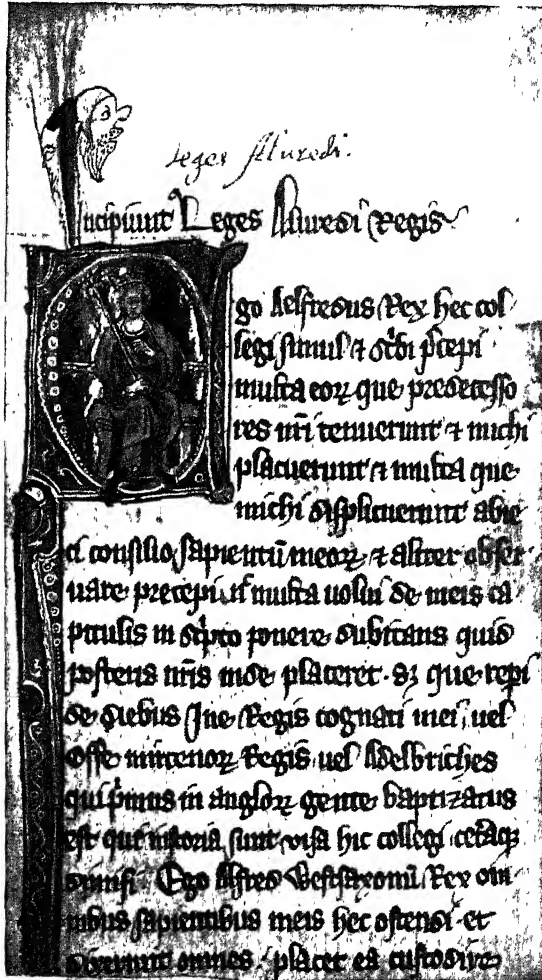 leges Aluredi.
Incipiunt Leges Aluredi Regis
Ego Aelfredus Rex hec col
legi simul ⁊ sc'bi p'cepi
multa eoꝝ que predecesso
res nr̄i tenuerunt ⁊ michi
placuerunt ⁊ multa que
michi displicuerunt abie
ci consilio sapientū meoꝝ ⁊ aliter obser
uare precepi. multa uolui de meis ca
pitulis in sc'pto ponere dubitans quid
posteris nr̄is inde placeret. sꝫ que rep̄i
de diebus Ine Regis cognati mei. uel
Offe mircenoꝝ Regis. uel Adelbriches
qui p'mus in angloꝝ gente baptizatus
est que sunt visa hic collegi
dimisi. Ego Westsaxonū Rex om
nibus sapientibus meis hec ostendi. et
dixerunt omnes. placet ea custodire